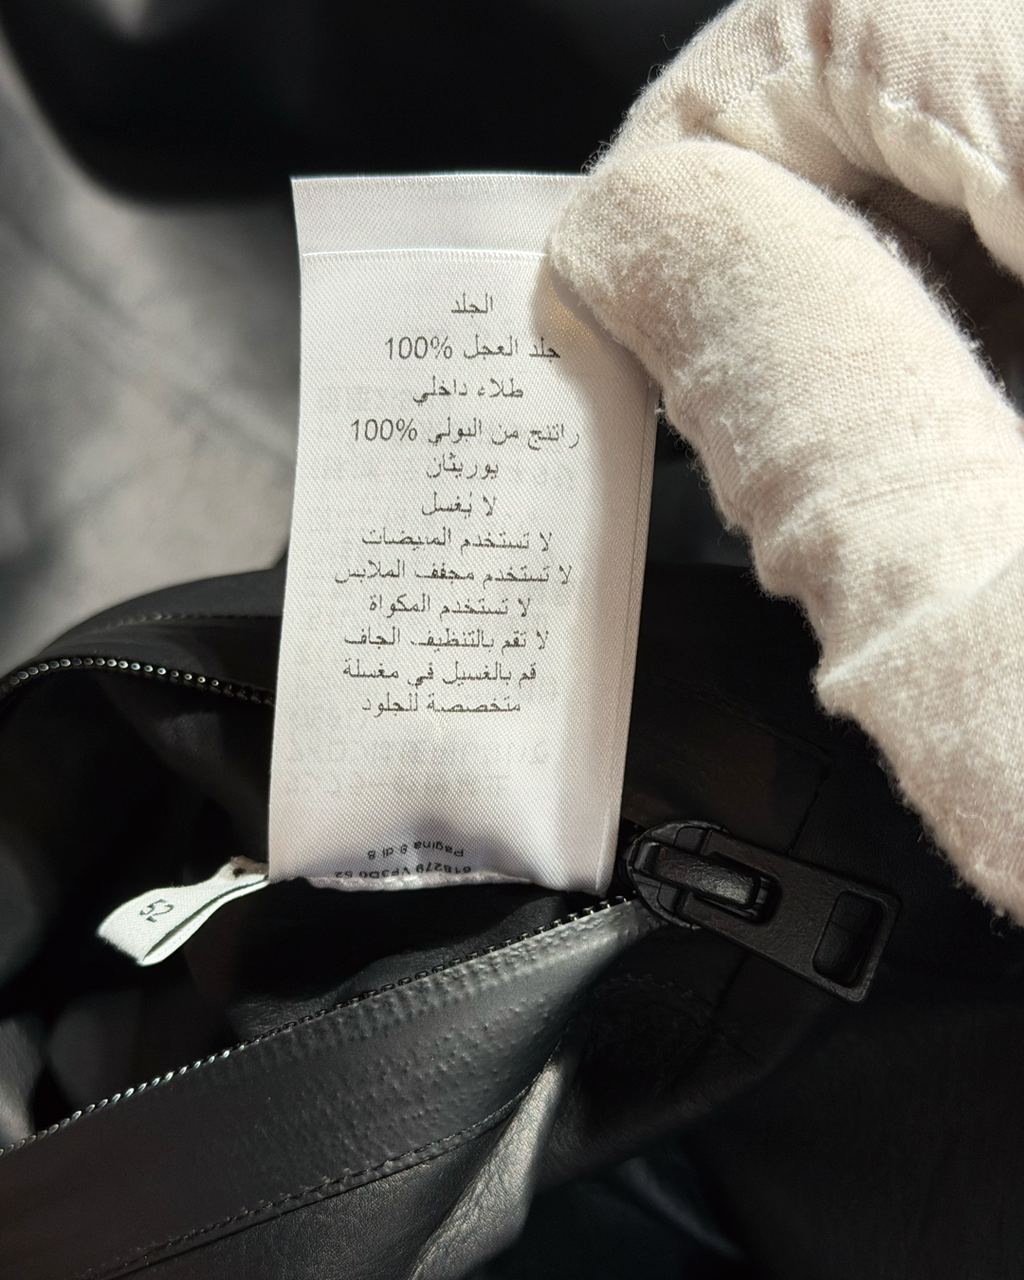 الجلد
جلد العجل %100
طلاء داخلي
راتنج من البولي %100
يوريثان
لا يُغسل
لا تستخدم المبيضات
لا تستخدم مجفف الملابس
لا تستخدم المكواة
لا تقم بالتنظيف الجاف
قم بالغسيل في مغسلة
متخصصة للجلود
Pagina 8 di 8
52
52